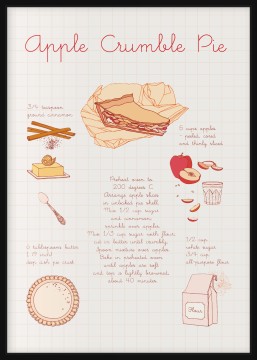 Apple Crumble Pie
3/4 teaspoon
ground cinnamon
5 cups apples
peeled, cored
and thinly sliced
Preheat oven to
200 degrees C.
Arrange apple slices
in unbaked pie shell.
Mix 1/2 cup sugar
and cinnamon;
sprinkle over apples.
Mix 1/3 cup sugar with flour;
cut in butter until crumbly.
Spoon mixture over apples.
Bake in preheated oven
until apples are soft
and top is lightly browned,
about 40 minutes.
6 tablespoons butter
1 (9 inch)
deep dish pie crust
1/2 cup
white sugar
3/4 cup
all-purpose flour
Flour